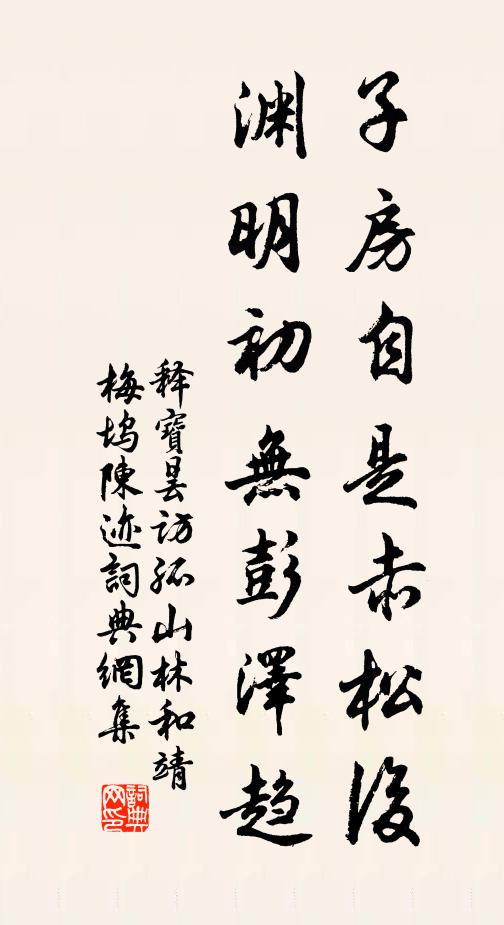 子房自是赤松後
渊明初無彭澤趣
释寶曇访孤山林和靖
梅坞陳迹詞典網集
詞典网印